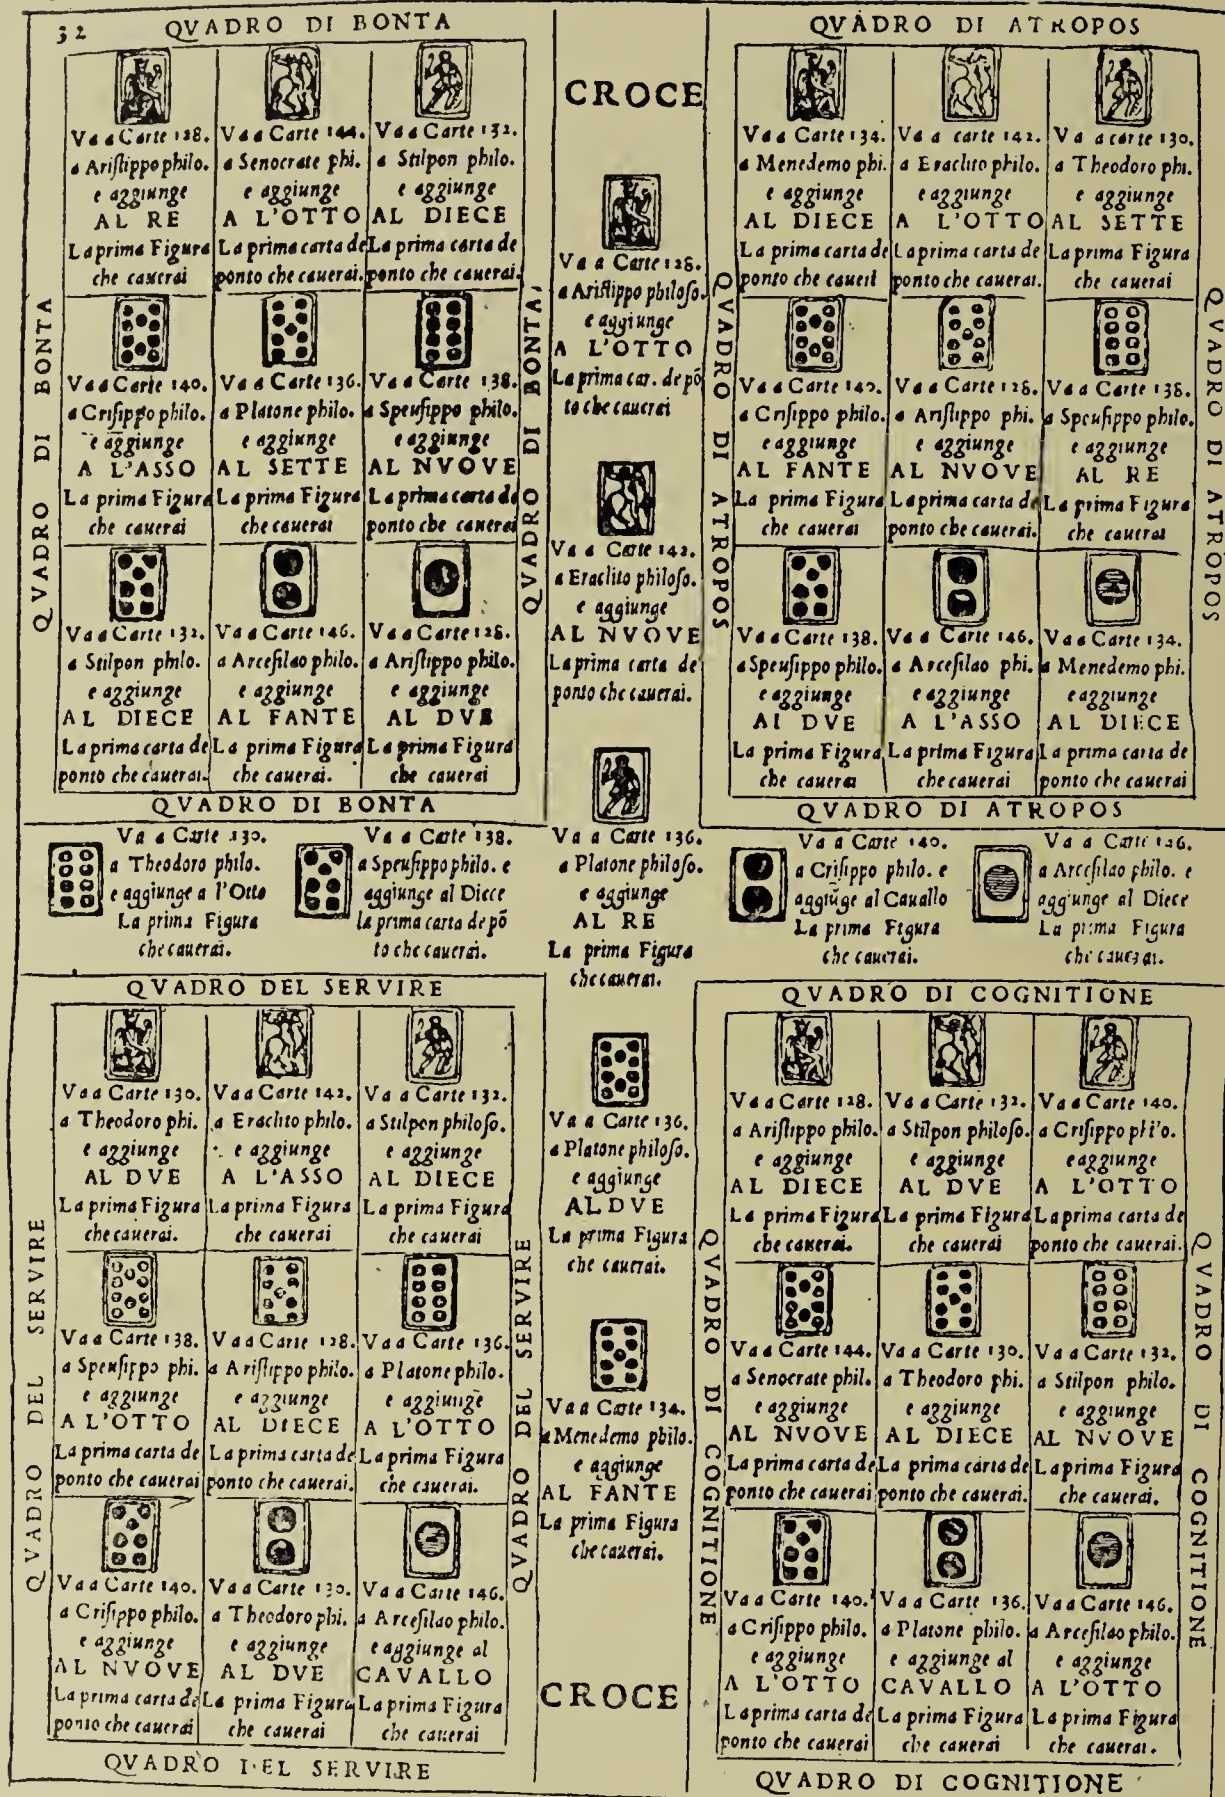 32
QVADRO DI BONTA
Va a Carte 128.
a Aristippo philo.
e aggiunge
AL RE
La prima Figura
che cauerai
Va a Carte 144.
a Senocrate phi.
e aggiunge
A L'OTTO
La prima carta de
ponto che cauerai.
Va a Carte 132.
a Stilpon philo.
e aggiunge
AL DIECE
La prima carta de
ponto che cauerai.
Va a Carte 140.
a Crisippo philo.
e aggiunge
A L'ASSO
La prima Figura
che cauerai
Va a Carte 136.
a Platone philo.
e aggiunge
AL SETTE
La prima Figura
che cauerai
Va a Carte 138.
a Speusippo philo.
e aggiunge
AL NVOVE
La prima carta de
ponto che cauerai
Va a Carte 132.
a Stilpon philo.
e aggiunge
AL DIECE
La prima carta de
ponto che cauerai.
Va a Carte 146.
a Arcesilao philo.
e aggiunge
AL FANTE
La prima Figura
che cauerai.
Va a Carte 128.
a Aristippo philo.
e aggiunge
AL DVE
La prima Figura
che cauerai
QVADRO DI BONTA
QVADRO DI BONTA
QVADRO DI BONTA
CROCE
Va a Carte 128.
a Aristippo philoso.
e aggiunge
A L'OTTO
La prima car. de põ
to che cauerai
Va a Carte 142.
a Eraclito philoso.
e aggiunge
AL NVOVE
La prima carta de
ponto che cauerai.
Va a Carte 136.
a Platone philoso.
e aggiunge
AL RE
La prima Figura
che cauerai.
Va a Carte 136.
a Platone philoso.
e aggiunge
AL DVE
La prima Figura
che cauerai.
Va a Carte 134.
a Menedemo philo.
e aggiunge
AL FANTE
La prima Figura
che cauerai.
CROCE
QVADRO DI ATROPOS
Va a Carte 134.
a Menedemo phi.
e aggiunge
AL DIECE
La prima carta de
ponto che caueil
Va a carte 142.
a Eraclito philo.
e aggiunge
A L'OTTO
La prima carta de
ponto che cauerai.
Va a carte 130.
a Theodoro phi.
e aggiunge
AL SETTE
La prima Figura
che cauerai
Va a Carte 140.
a Crisippo philo.
e aggiunge
AL FANTE
La prima Figura
che cauerai
Va a Carte 128.
a Aristippo phi.
e aggiunge
AL NVOVE
La prima carta de
ponto che cauerai.
Va a Carte 138.
a Speusippo philo.
e aggiunge
AL RE
La prima Figura
che cauerai
Va a Carte 138.
a Speusippo philo.
e aggiunge
Al DVE
La prima Figura
che cauerai
Va a Carte 146.
a Arcesilao phi.
e aggiunge
A L'ASSO
La prima Figura
che cauerai
Va a Carte 134.
a Menedemo phi.
e aggiunge
AL DIECE
La prima carta de
ponto che cauerai
QVADRO DI ATROPOS
QVADRO DI ATROPOS
QVADRO DI ATROPOS
Va a Carte 130.
a Theodoro philo.
e aggiunge a l'Otto
La prima Figura
che cauerai.
Va a Carte 138.
a Speusippo philo. e
aggiunge al Diece
la prima carta de põ
to che cauerai.
Va a Carte 140.
a Crisippo philo. e
aggiũge al Cauallo
La prima Figura
che cauerai.
Va a Carte
a Arcesilao philo. e
aggiunge al Diece
La prima Figura
che cauerai.
QVADRO DEL SERVIRE
Va a Carte 130.
a Theodoro phi.
e aggiunge
AL DVE
La prima Figura
che cauerai.
Va a Carte 142.
a Eraclito philo.
e aggiunge
A L'ASSO
La prima Figura
che cauerai
Va a Carte 132.
a Stilpon philoso.
e aggiunge
AL DIECE
La prima Figura
che cauerai
Va a Carte 138.
a Speusippo phi.
e aggiunge
A L'OTTO
La prima carta de
ponto che cauerai
Va a Carte 128.
a Aristippo philo.
e aggiunge
AL DIECE
La prima carta de
ponto che cauerai.
Va a Carte 136.
a Platone philo.
e aggiunge
A L'OTTO
La prima Figura
che cauerai.
Va a Carte 140.
a Crisippo philo.
e aggiunge
AL NVOVE
La prima carta de
ponto che cauerai
Va a Carte 130.
a Theodoro phi.
e aggiunge
AL DVE
La prima Figura
che cauerai
Va a Carte 146.
a Arcesilao philo.
e aggiunge al
CAVALLO
La prima Figura
che cauerai
QVADRO DEL SERVIRE
QVADRO DEL SERVIRE
QVADRO DEL SERVIRE
QVADRO DI COGNITIONE
Va a Carte 128.
a Aristippo philo.
e aggiunge
AL DIECE
La prima Figura
che cauerai.
Va a Carte 132.
a Stilpon philoso.
e aggiunge
AL DVE
La prima Figura
che cauerai
Va a Carte 140.
a Crisippo philo.
e aggiunge
A L'OTTO
La prima carta de
ponto che cauerai.
Va a Carte 144.
a Senocrate phil.
e aggiunge
AL NVOVE
La prima carta de
ponto che cauerai
Va a Carte 130.
a Theodoro phi.
e aggiunge
AL DIECE
La prima carta de
ponto che cauerai.
Va a Carte 132.
a Stilpon philo.
e aggiunge
AL NVOVE
La prima Figura
che cauerai.
Va a Carte 140.
a Crisippo philo.
e aggiunge
A L'OTTO
La prima carta de
ponto che cauerai
Va a Carte 136.
a Platone philo.
e aggiunge al
CAVALLO
La prima Figura
che cauerai
Va a Carte 146.
a Arcesilao philo.
e aggiunge
A L'OTTO
La prima Figura
che cauerai.
QVADRO DI COGNITIONE
QVADRO DI COGNITIONE
QVADRO DI COGNITIONE